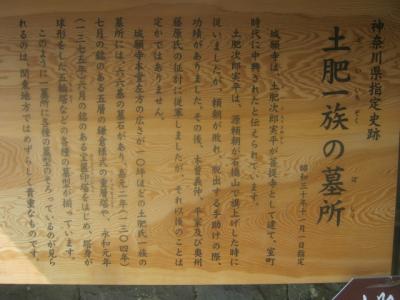 神奈川県指定史跡
土肥一族の墓所
どひいちぞく ぼ
昭和三十年十一月一日指定
城願寺は、土肥次郎実平が菩提寺として建て、室町
時代に中興されたと伝えられています。
土肥次郎実平は、源頼朝が石橋山で旗上げした時に
従いましたが、頼朝が敗れ、脱出する手助けの際、
功績がありました。その後、木曾義仲、平家及び奥州
藤原氏の征討に従軍しましたが、それ以後のことは
定かではありません。
城願寺本堂左方の広さが一〇坪ほどの土肥氏一族の
墓所には、六六基の墓石があり、嘉元二年(一三〇四年)
七月の銘のある五層の鎌倉様式の重層塔や、永和元年
(一三七五年)六月の銘のある宝篋印塔をはじめ、塔身が
球形をした五輪塔などの各種の墓型が揃っています。
このように一墓所に各種の墓型のそろっているのが見ら
れるのは、関東地方ではめずらしく貴重なものです。